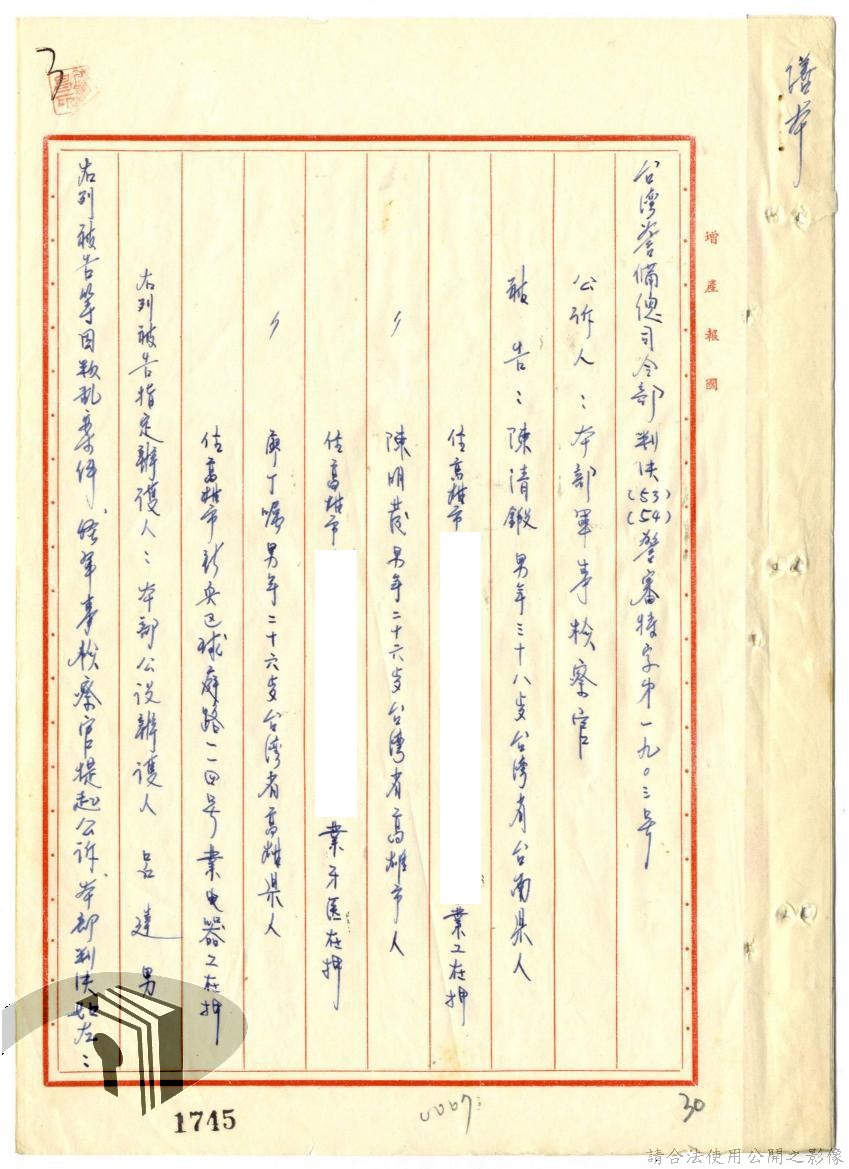 繕本
增產報國
台湾警備總司令部判決(53)(54)警審特字第一九〇三号
公訴人:本部軍事檢察官
被告:陳清鍛 男年三十八岁台湾省台南県人
住高雄市 業工在押
〃 陳明發 男年二十六岁台湾省高雄市人
住高雄市 業牙医在押
〃 男年二十六岁台湾省高雄県人
住高雄市新兴区球庭路一一四号業电器工在押
右列被告指定辯護人:本部公設辯護人 呂建男
右列被告等因叛乱案件,經軍事檢察官提起公訴,本部判決如左:
3
1745
0007
30
請合法使用公開之影像